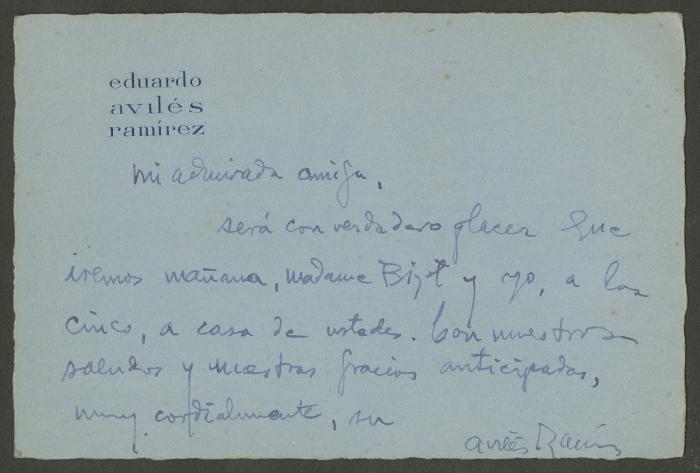 eduardo
avilés
ramírez
mi admirada amiga,
será con verdadero placer que
iremos mañana, madame Bizet y yo, a las
cinco, a casa de ustedes. Con nuestros
saludos y nuestras gracias anticipadas,
muy cordialmente, su
avilés Ramírez